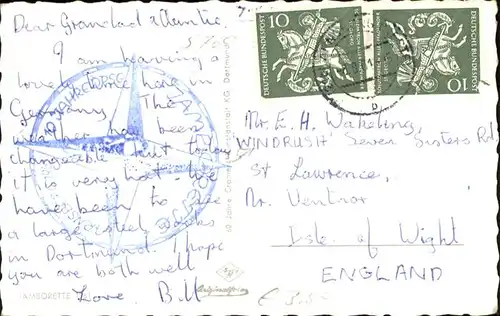 Dear Grandad & Auntie.
I am having a
lovely time here in
Germany. The
weather has been
changeable but today
it is very hot. We
have been to see
a large steel works
in Dortmund. I hope
you are both well
Love. Bill
JAMBORETTE
Originalfoto
DEUTSCHE BUNDESPOST
10
DEUTSCHE BUNDESPOST
10
Mr. E. H. Wakeling,
"WINDRUSH" Seven Sisters Rd
St Lawrence,
Nr. Ventnor
Isle of Wight
ENGLAND